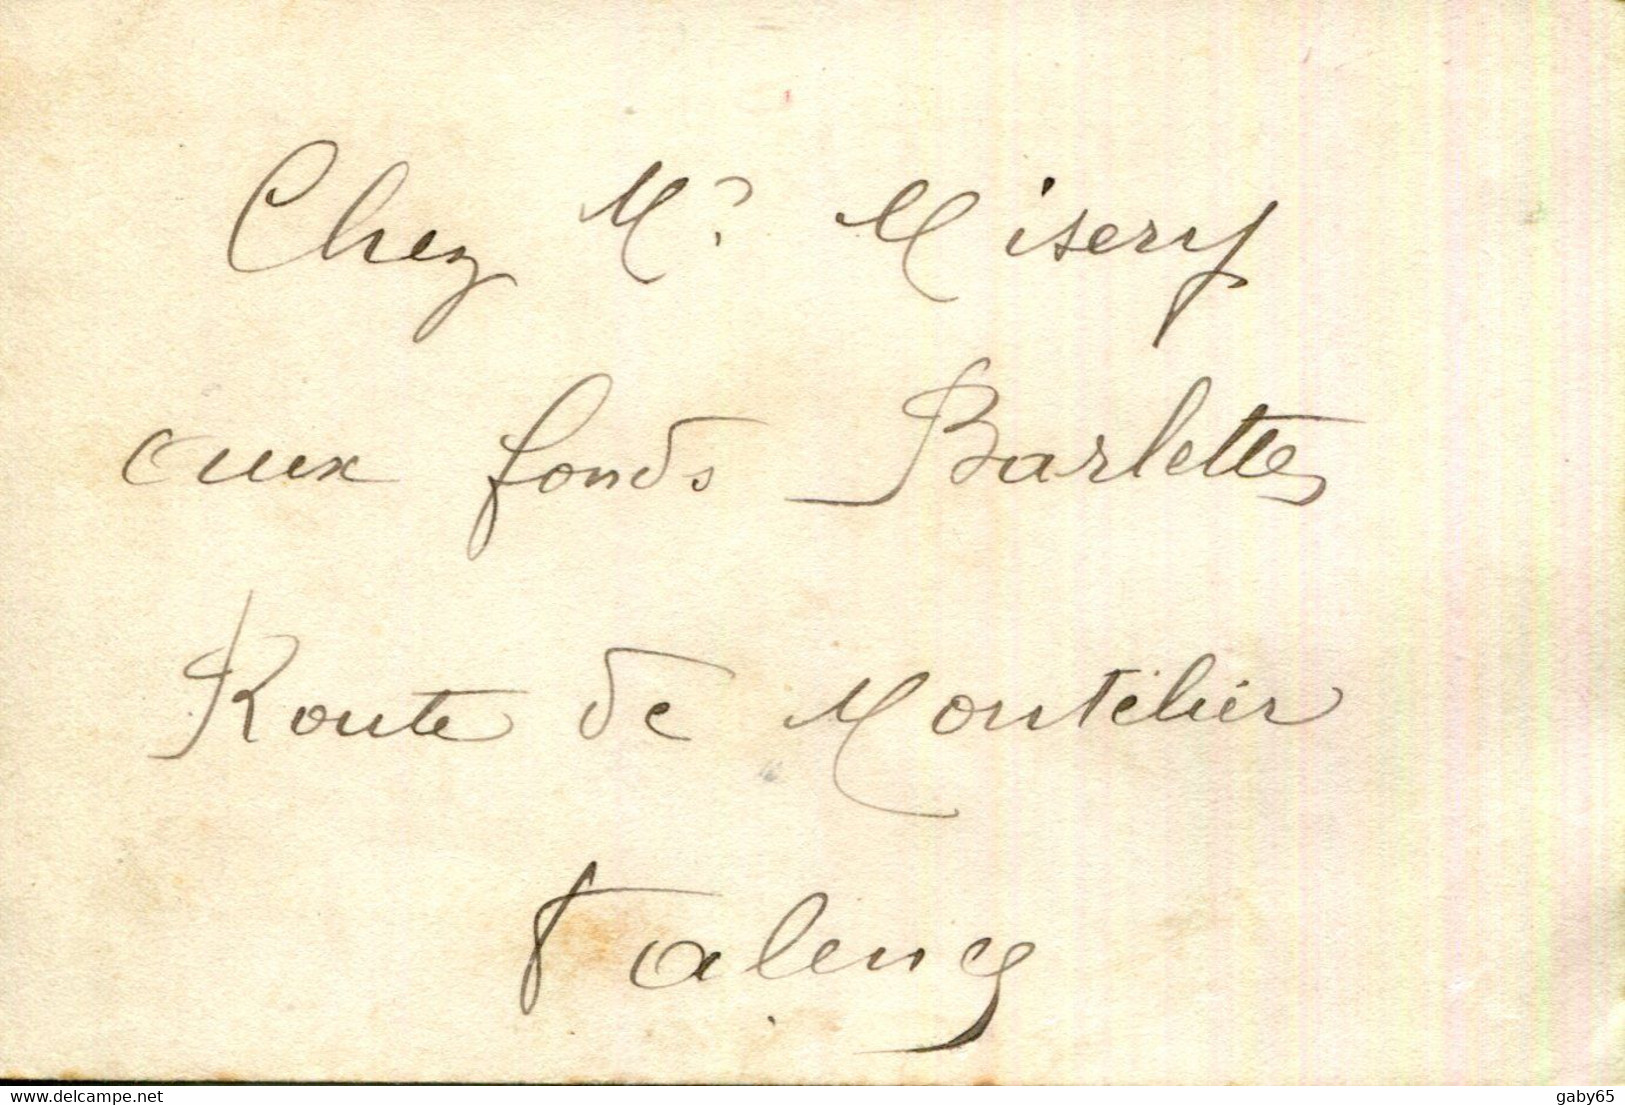 Chez Mr. Misery
aux fonds Barlettes
Route de Montélier
Valence
www.delcampe.net
gaby65